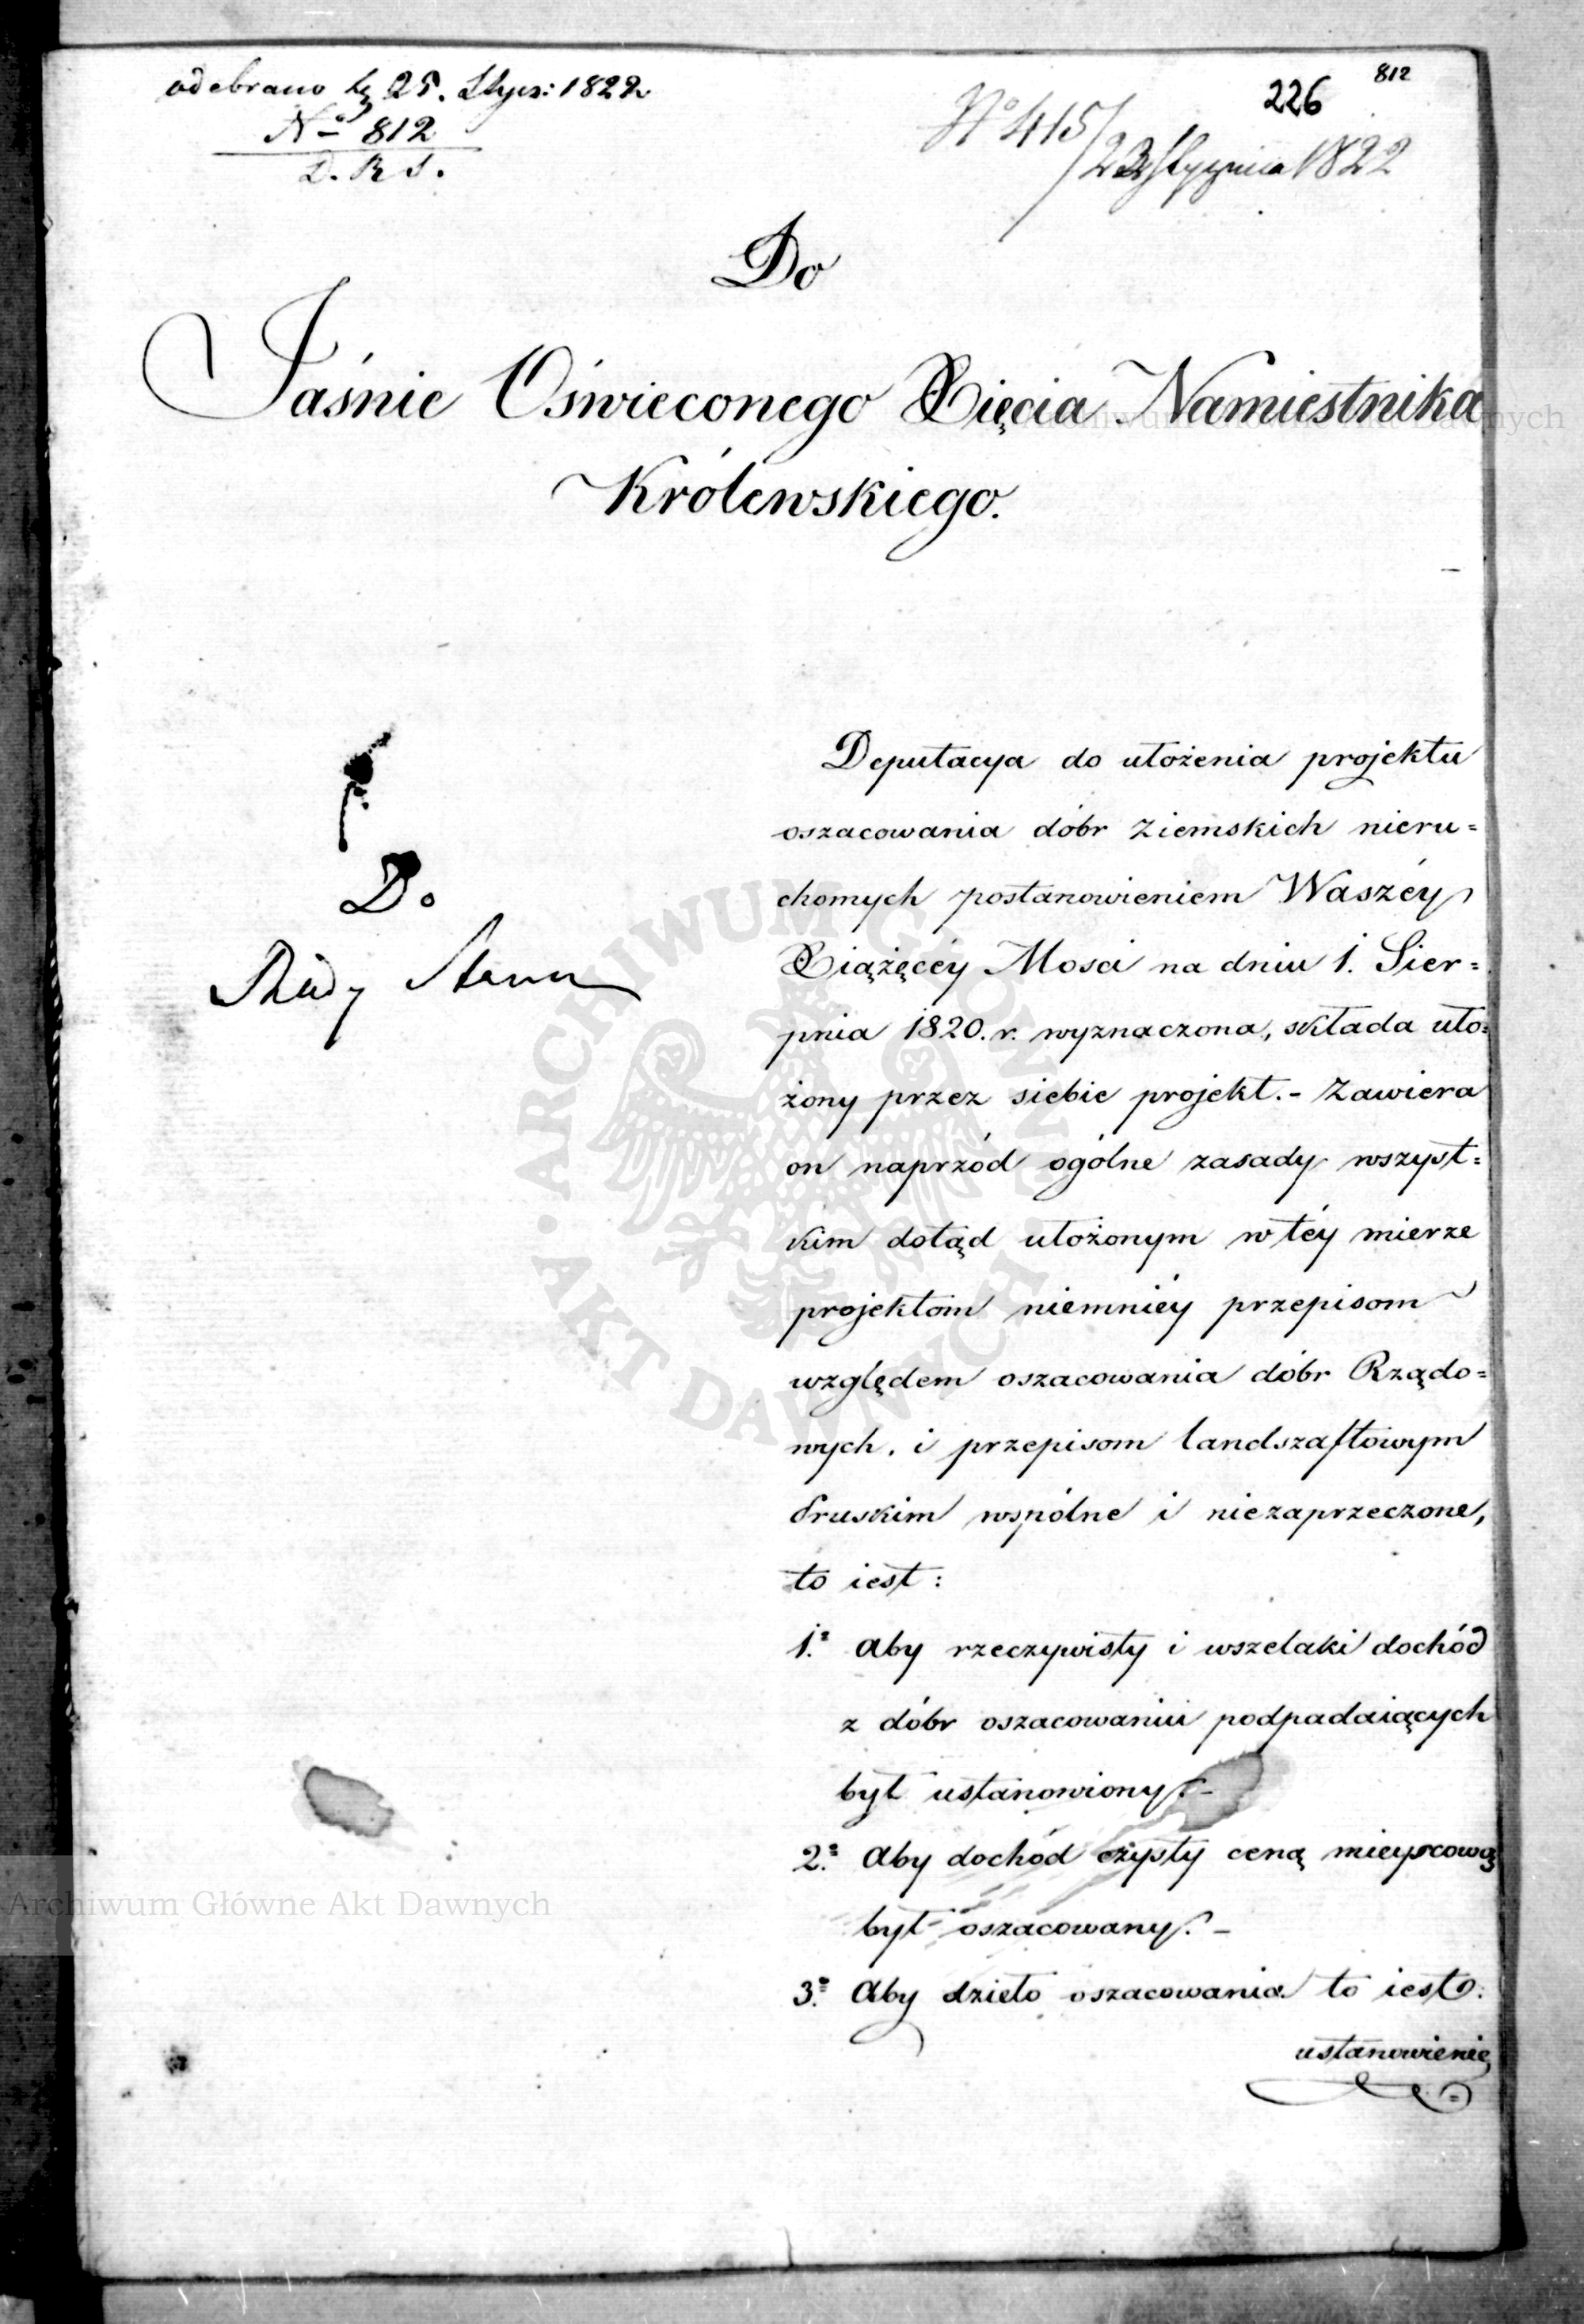 odebrano d. 25. Stycz: 1822
No 812
D. R S.
812
226
No 415/
23 Stycznia 1822
Do
Jaśnie Oświeconego Xięcia Namiestnika
Królewskiego.
Do
Rady Stanu
Deputacya do ułożenia projektu
oszacowania dóbr Ziemskich nieru=
chomych postanowieniem Waszéy
Xiążęcéy Mosci na dniu 1. Sier=
pnia 1820. r. wyznaczona, składa uło=
żony przez siebie projekt.- Zawiera
on naprzód ogólne zasady wszyst=
kim dotąd ułożonym w téy mierze
projektom niemniéy przepisom
względem oszacowania dóbr Rządo=
wych, i przepisom landszaftowym
Pruskim wspólne i niezaprzeczone,
to iest:
1. Aby rzeczywisty i wszelaki dochód
z dóbr oszacowaniu podpadaiących
był ustanowiony.-
2. Aby dochód czysty ceną mieyscową
był oszacowany. -
3. Aby dzieło oszacowania to iest:
ustanowienie
ARCHIWUM GŁÓWNE · AKT DAWNYCH ·
Archiwum Główne Akt Dawnych
Archiwum Główne Akt Dawnych